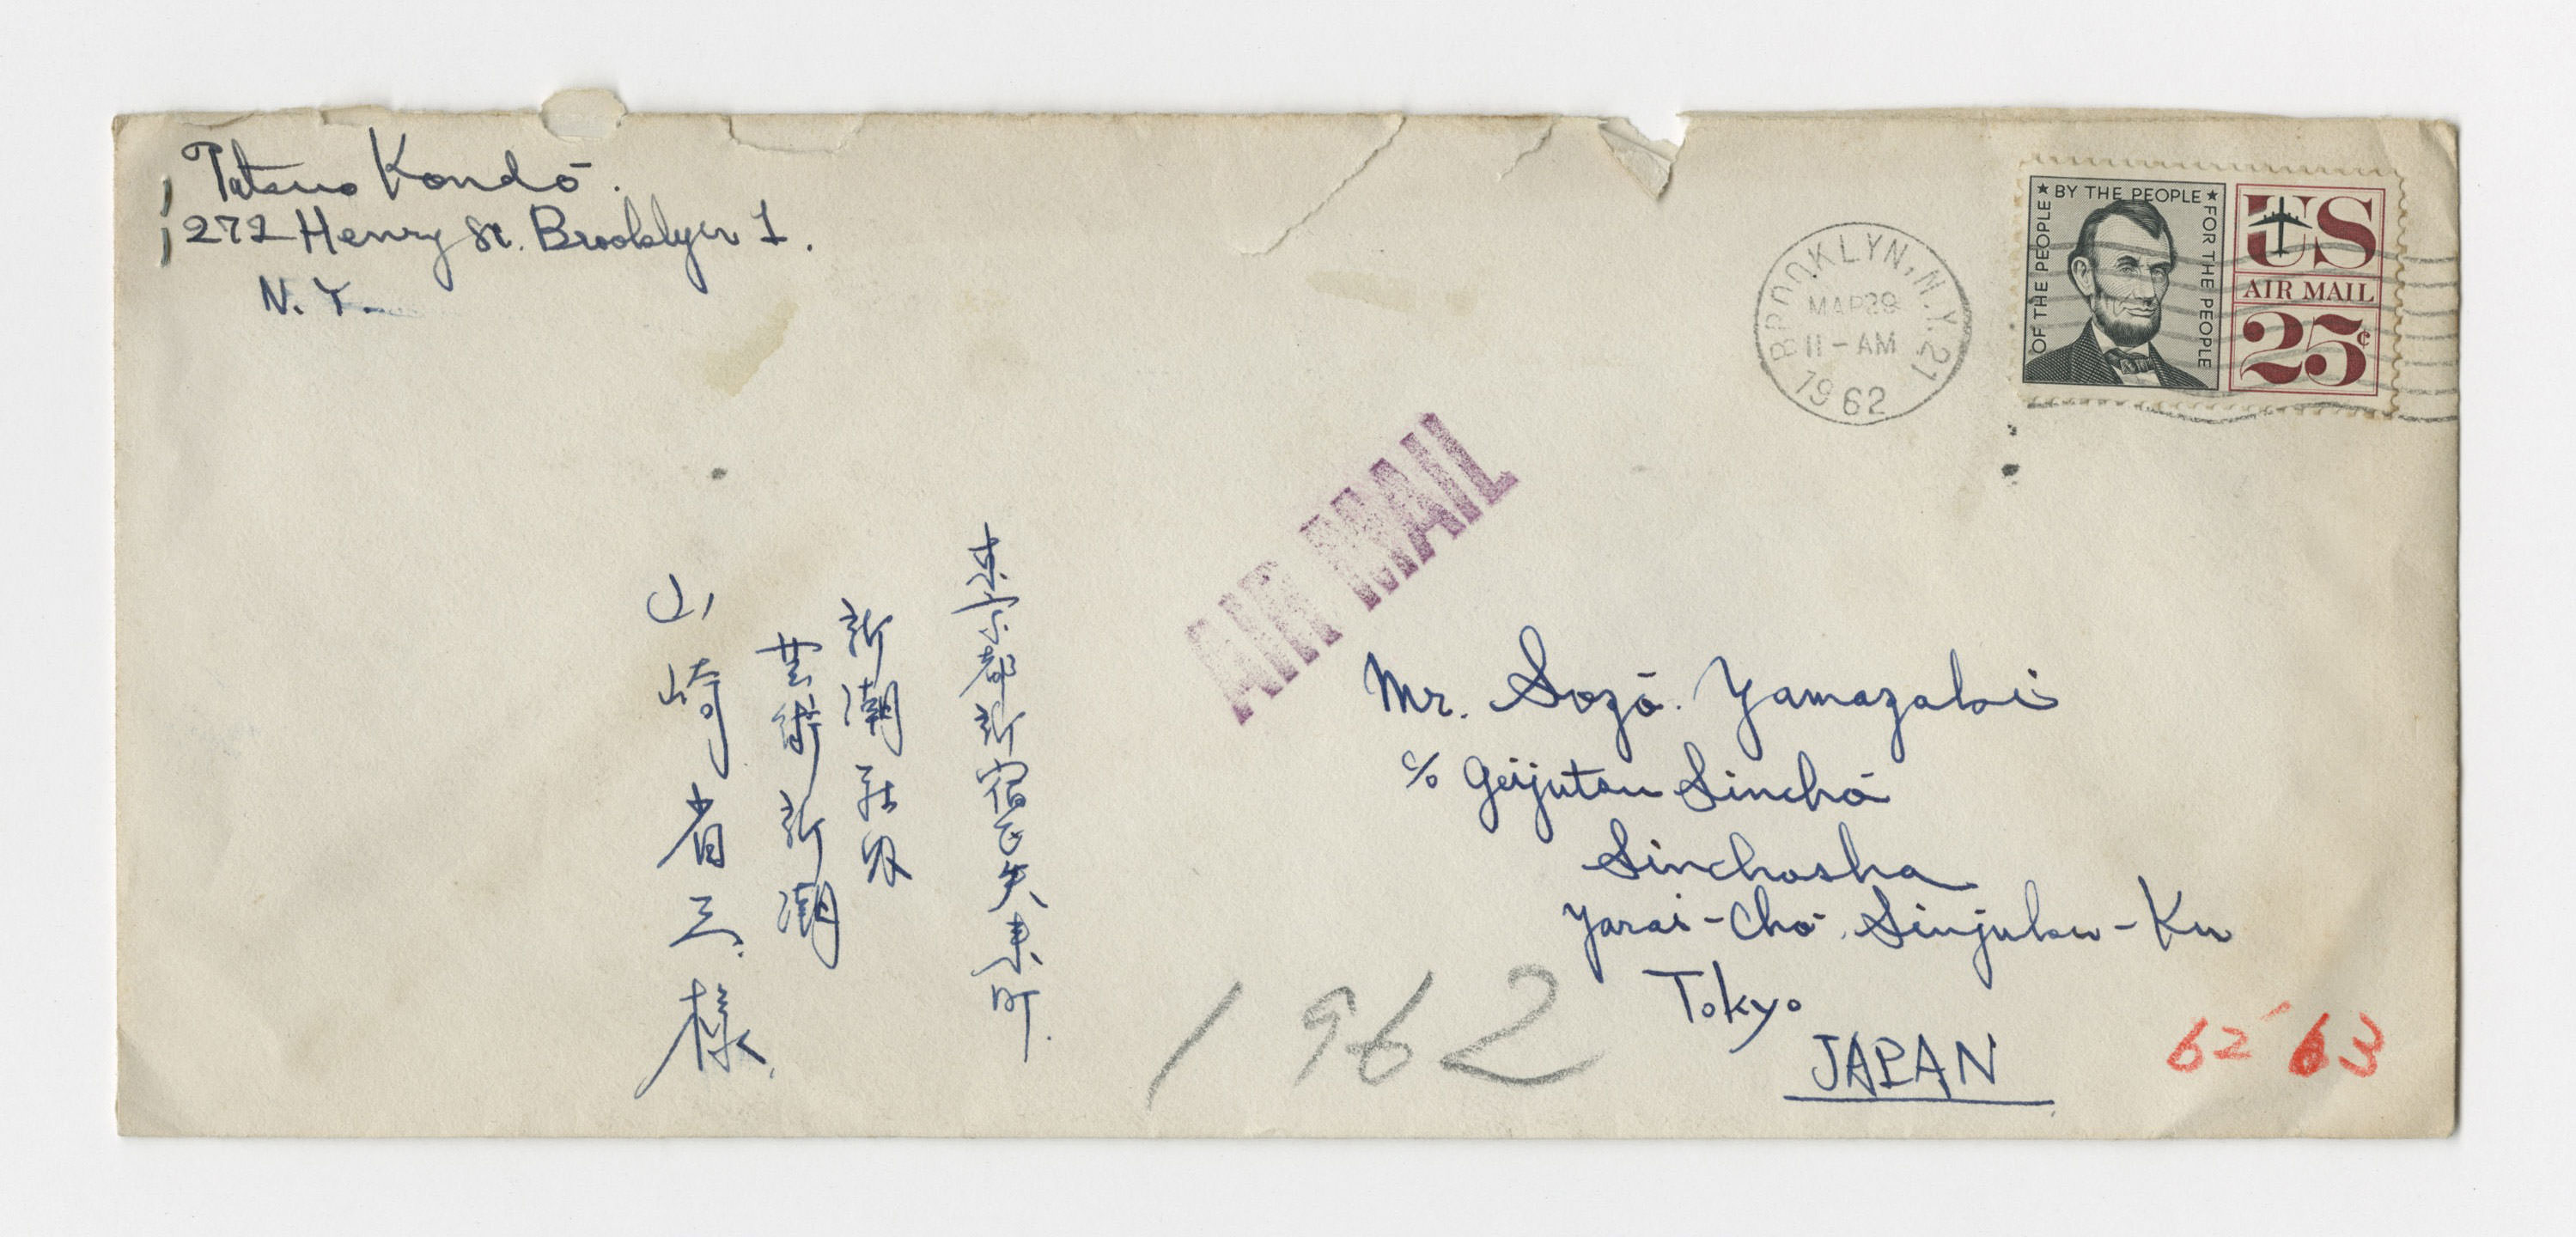 Tatsuo Kondō.
272 Henry St. Brooklyn 1.
N. Y.
BROOKLYN, N.Y. 21
MAR 28
11-AM
1962
OF THE PEOPLE ★ BY THE PEOPLE ★ FOR THE PEOPLE
US
AIR MAIL
25¢
AIR MAIL
東京都新宿区矢来町
新潮社内
芸術新潮
山崎省三様
Mr. Sozō. Yamazaki
c/o Geijutsu Sinchō
Sinchosha
Yarai-Chō, Sinjuku-Ku
Tokyo
JAPAN
1962
62 63